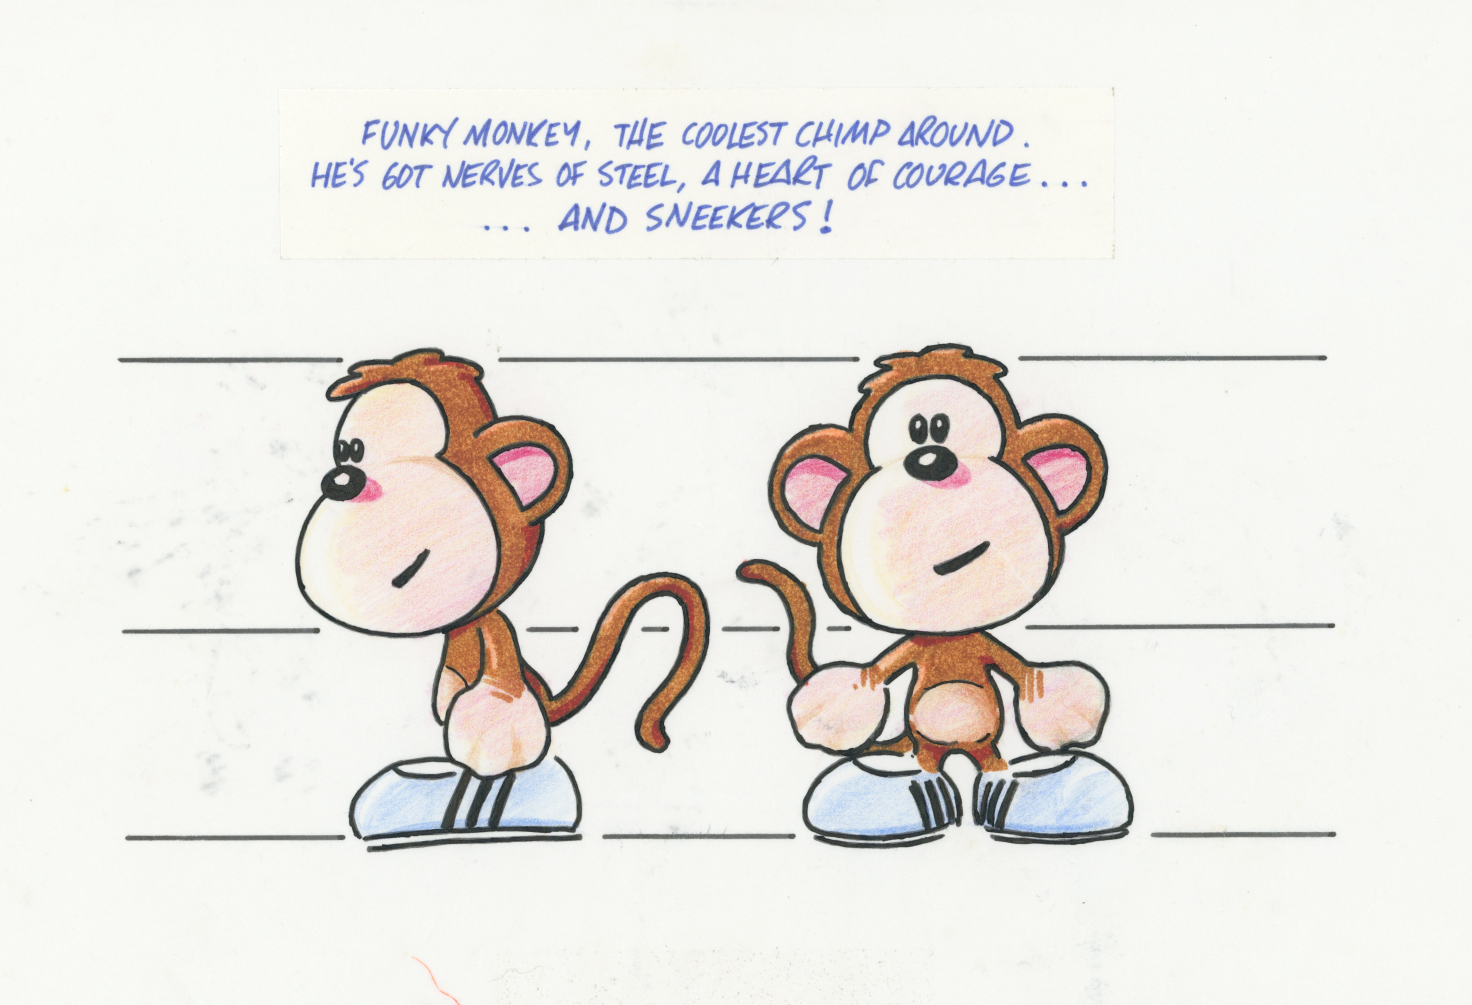 FUNKY MONKEY, THE COOLEST CHIMP AROUND.
HE'S GOT NERVES OF STEEL, A HEART OF COURAGE...
... AND SNEEKERS!